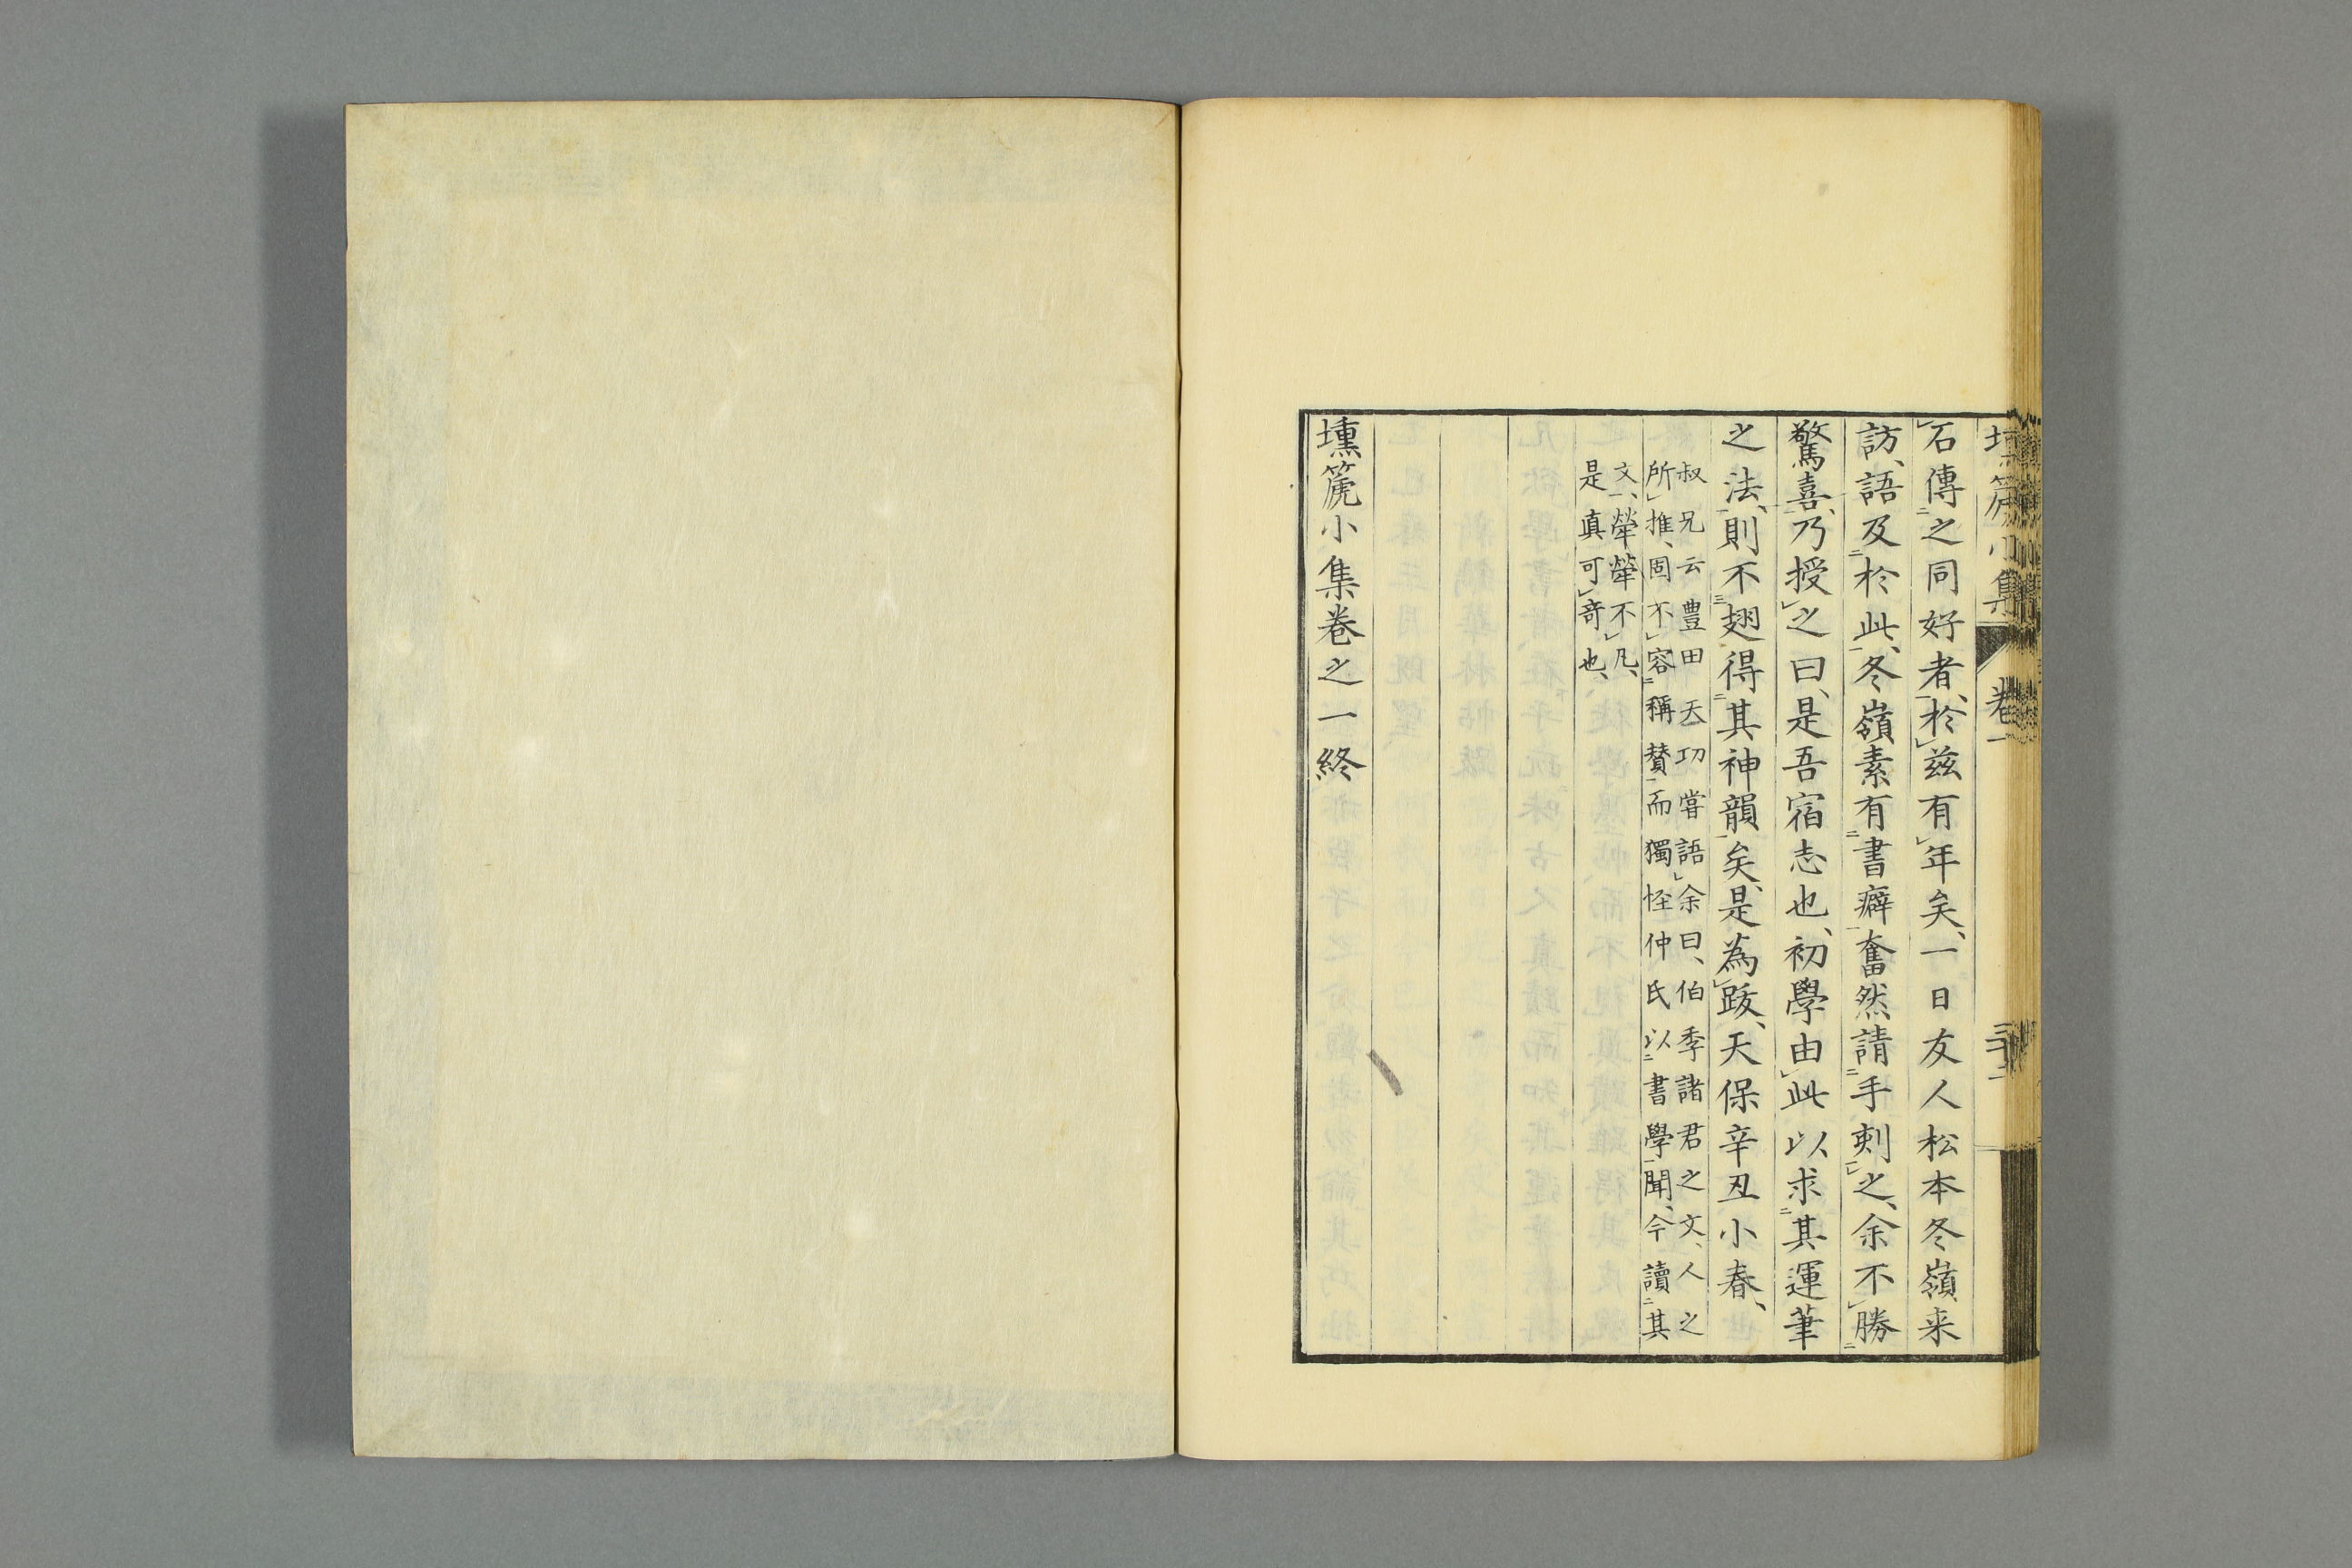 石傳之同好者、於茲有年矣、一日友人松本冬嶺来
訪、語及於此、冬嶺素有書癖奮然請手刺之、余不勝
驚喜、乃授之曰、是吾宿志也、初學由此以求其運筆
之法、則不翅得其神韻矣、是為跋、天保辛丑小春、
叔兄云豊田天功嘗語余曰、伯季諸君之文、人之
所推、固不容稱賛而獨怪仲氏以書學聞、今讀其
文、犖犖不凡、
是真可奇也、
壎篪小集卷之一終
壎篪小集 卷一